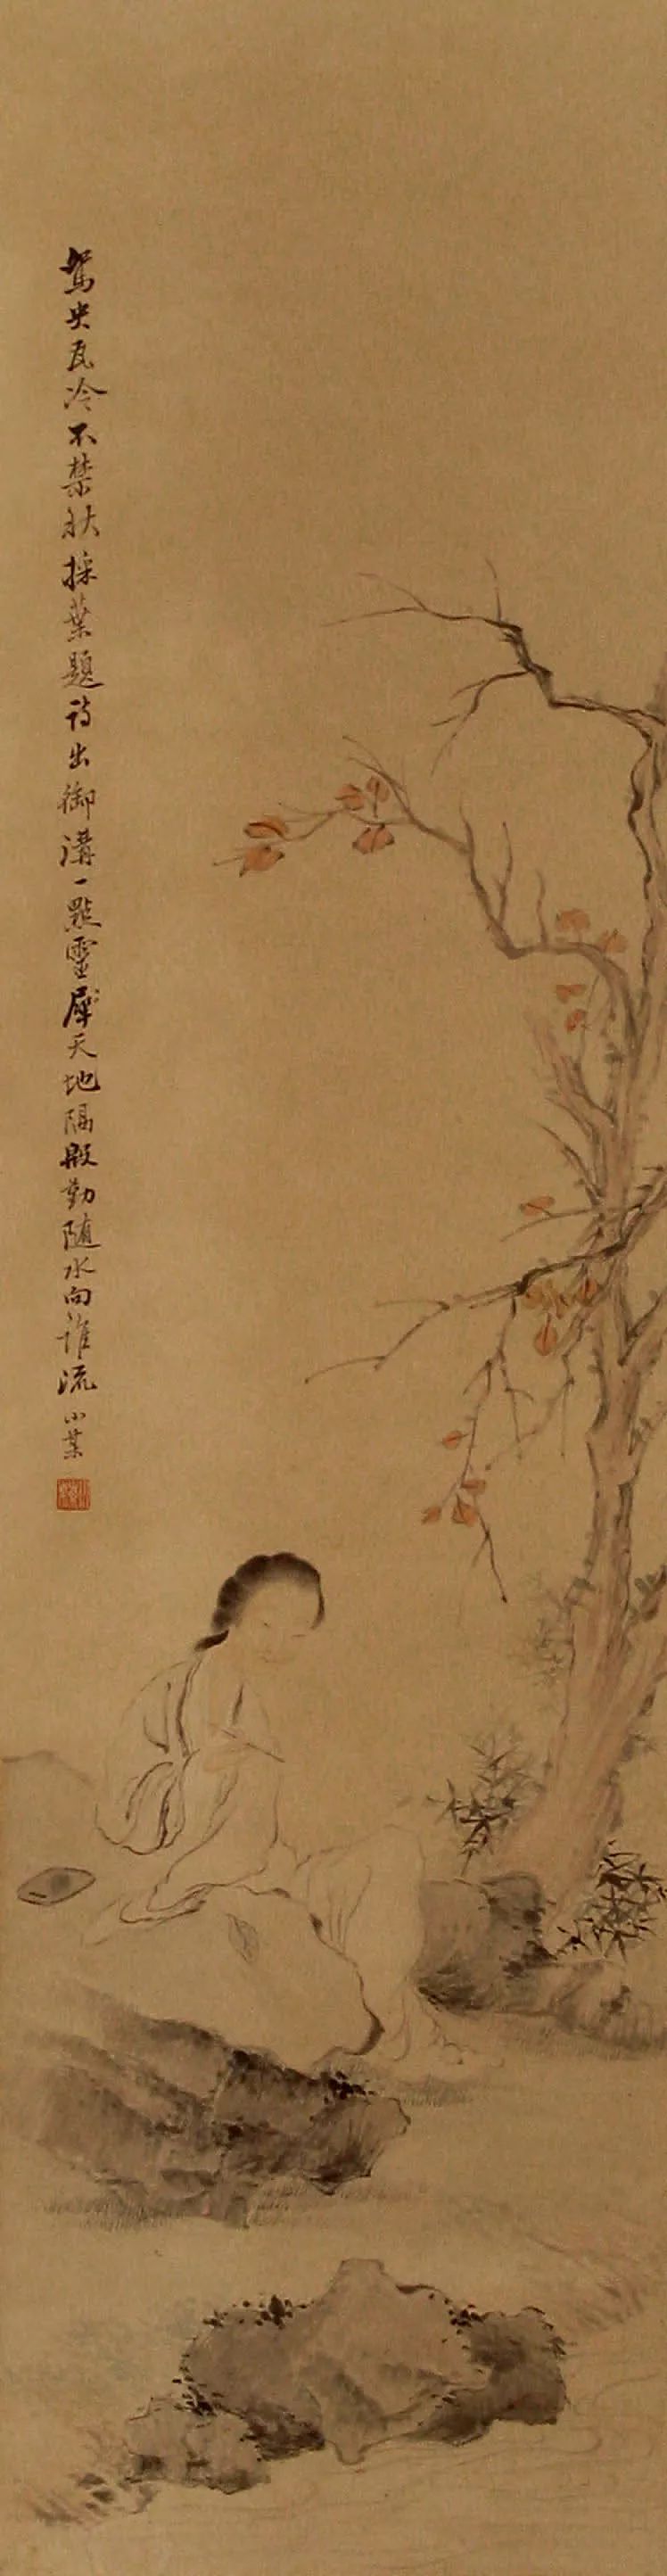 鴛央瓦冷不禁秋採葉題詩出御溝一點靈犀天地隔殷勤随水向誰流 小某